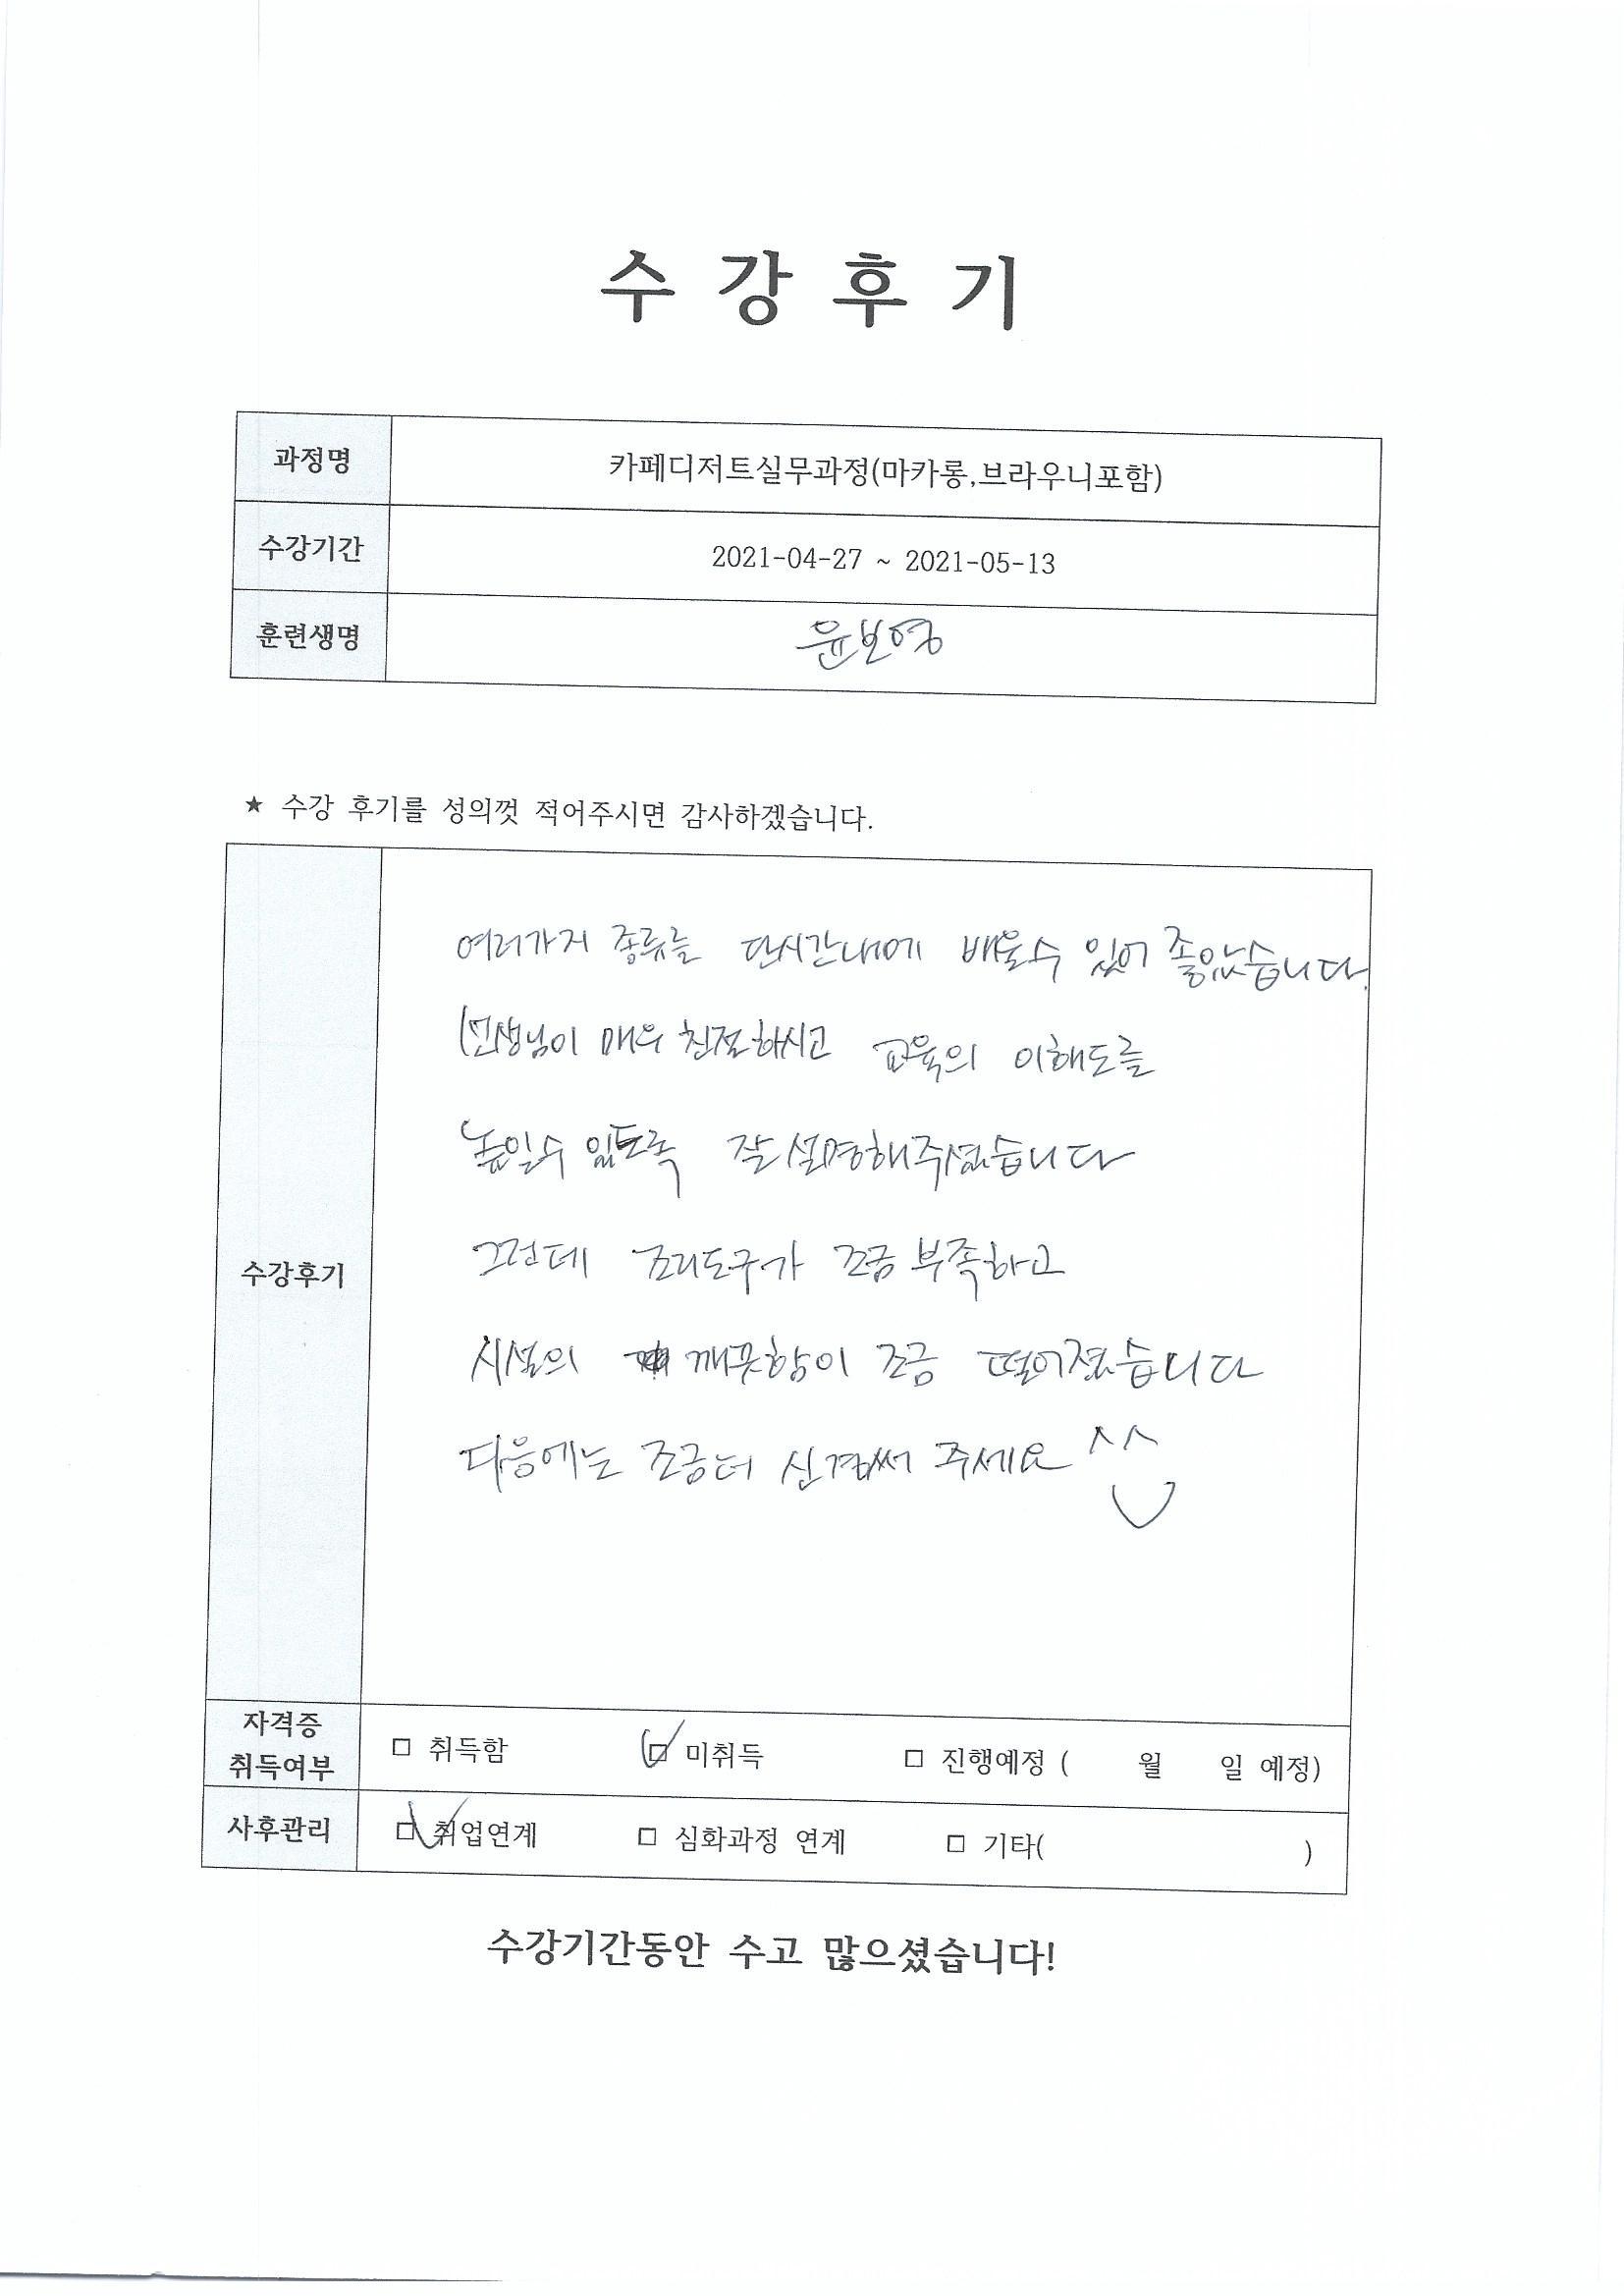 수 강 후 기
과정명 카페디저트실무과정(마카롱,브라우니포함)
수강기간 2021-04-27 ~ 2021-05-13
훈련생명 윤보영
★ 수강 후기를 성의껏 적어주시면 감사하겠습니다.
수강후기
여러가지 종류를 단시간내에 배울수 있어 좋았습니다.
선생님이 매우 친절하시고 교육의 이해도를
높일수 있도록 잘 설명해주셨습니다
그런데 조리도구가 조금 부족하고
시설의 깨끗함이 조금 떨어졌습니다
다음에는 조금더 신경써 주세요 ^^
자격증
취득여부 □ 취득함 ☑ 미취득 □ 진행예정 ( 월 일 예정)
사후관리 ☑ 취업연계 □ 심화과정 연계 □ 기타( )
수강기간동안 수고 많으셨습니다!